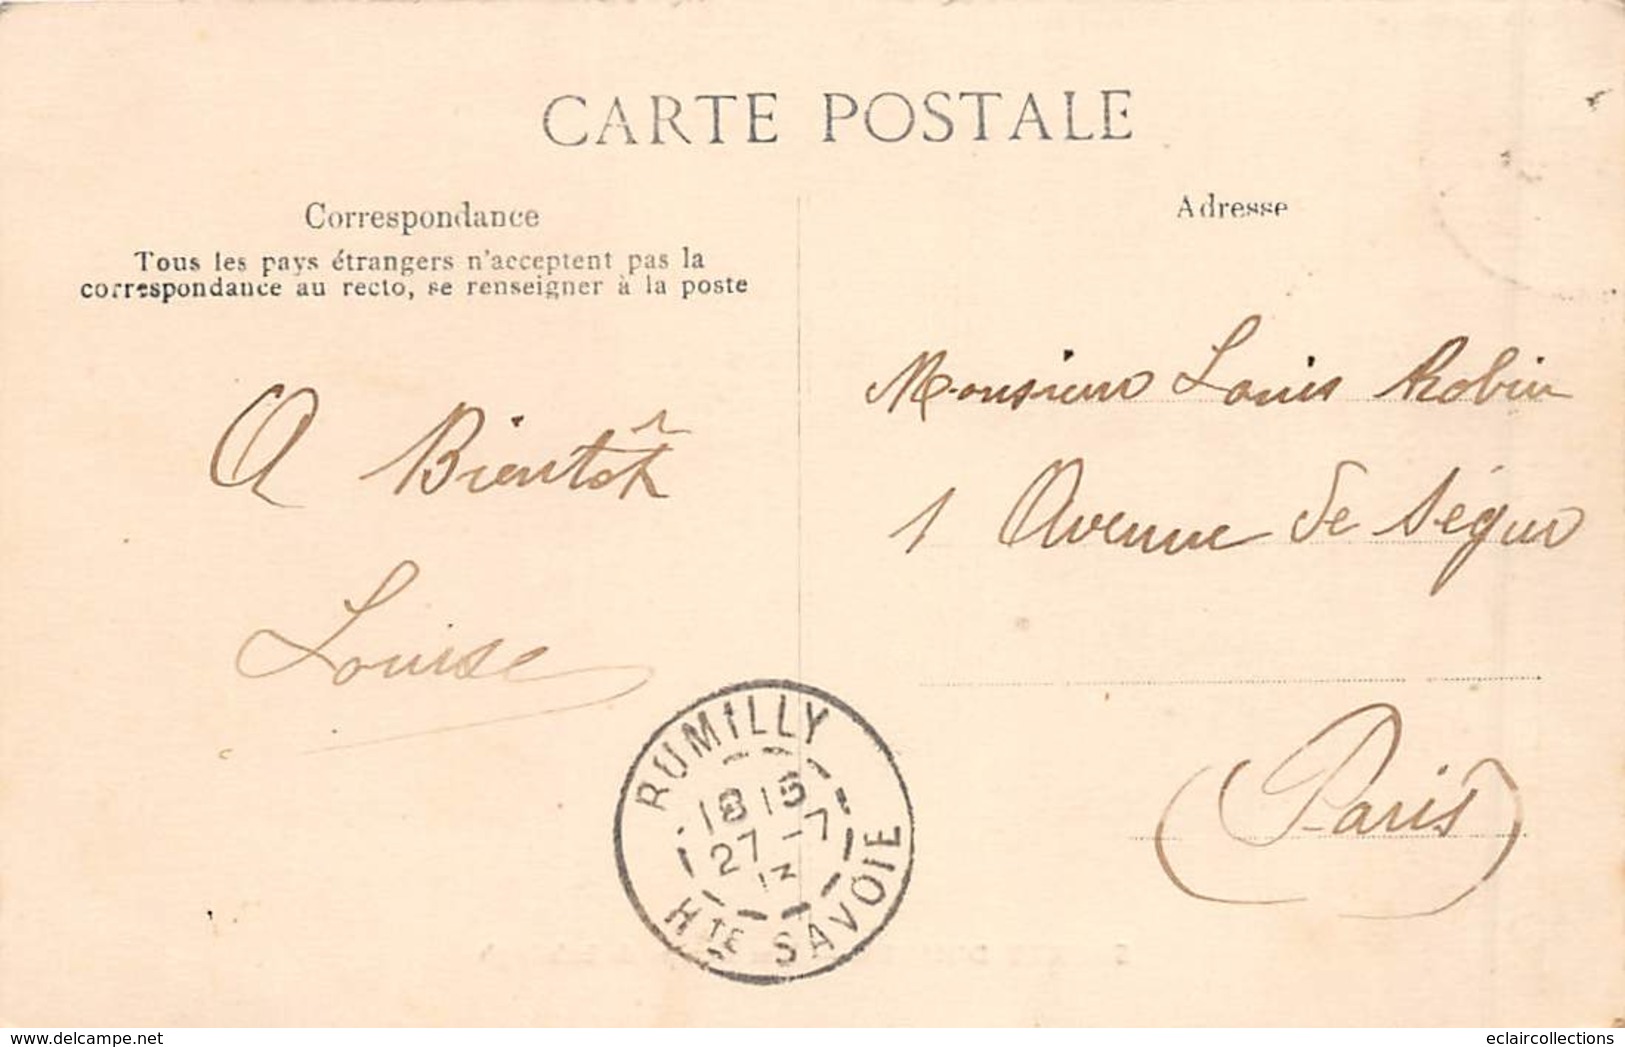 CARTE POSTALE
Correspondance
Tous les pays étrangers n'acceptent pas la
correspondance au recto, se renseigner à la poste
A Bientôt
Louise
Adresse
Monsieur Louis Robin
1 Avenue de Ségur
(Paris)
RUMILLY
18 15
27 - 7
13
HTE SAVOIE
www.delcampe.net
eclaircollections